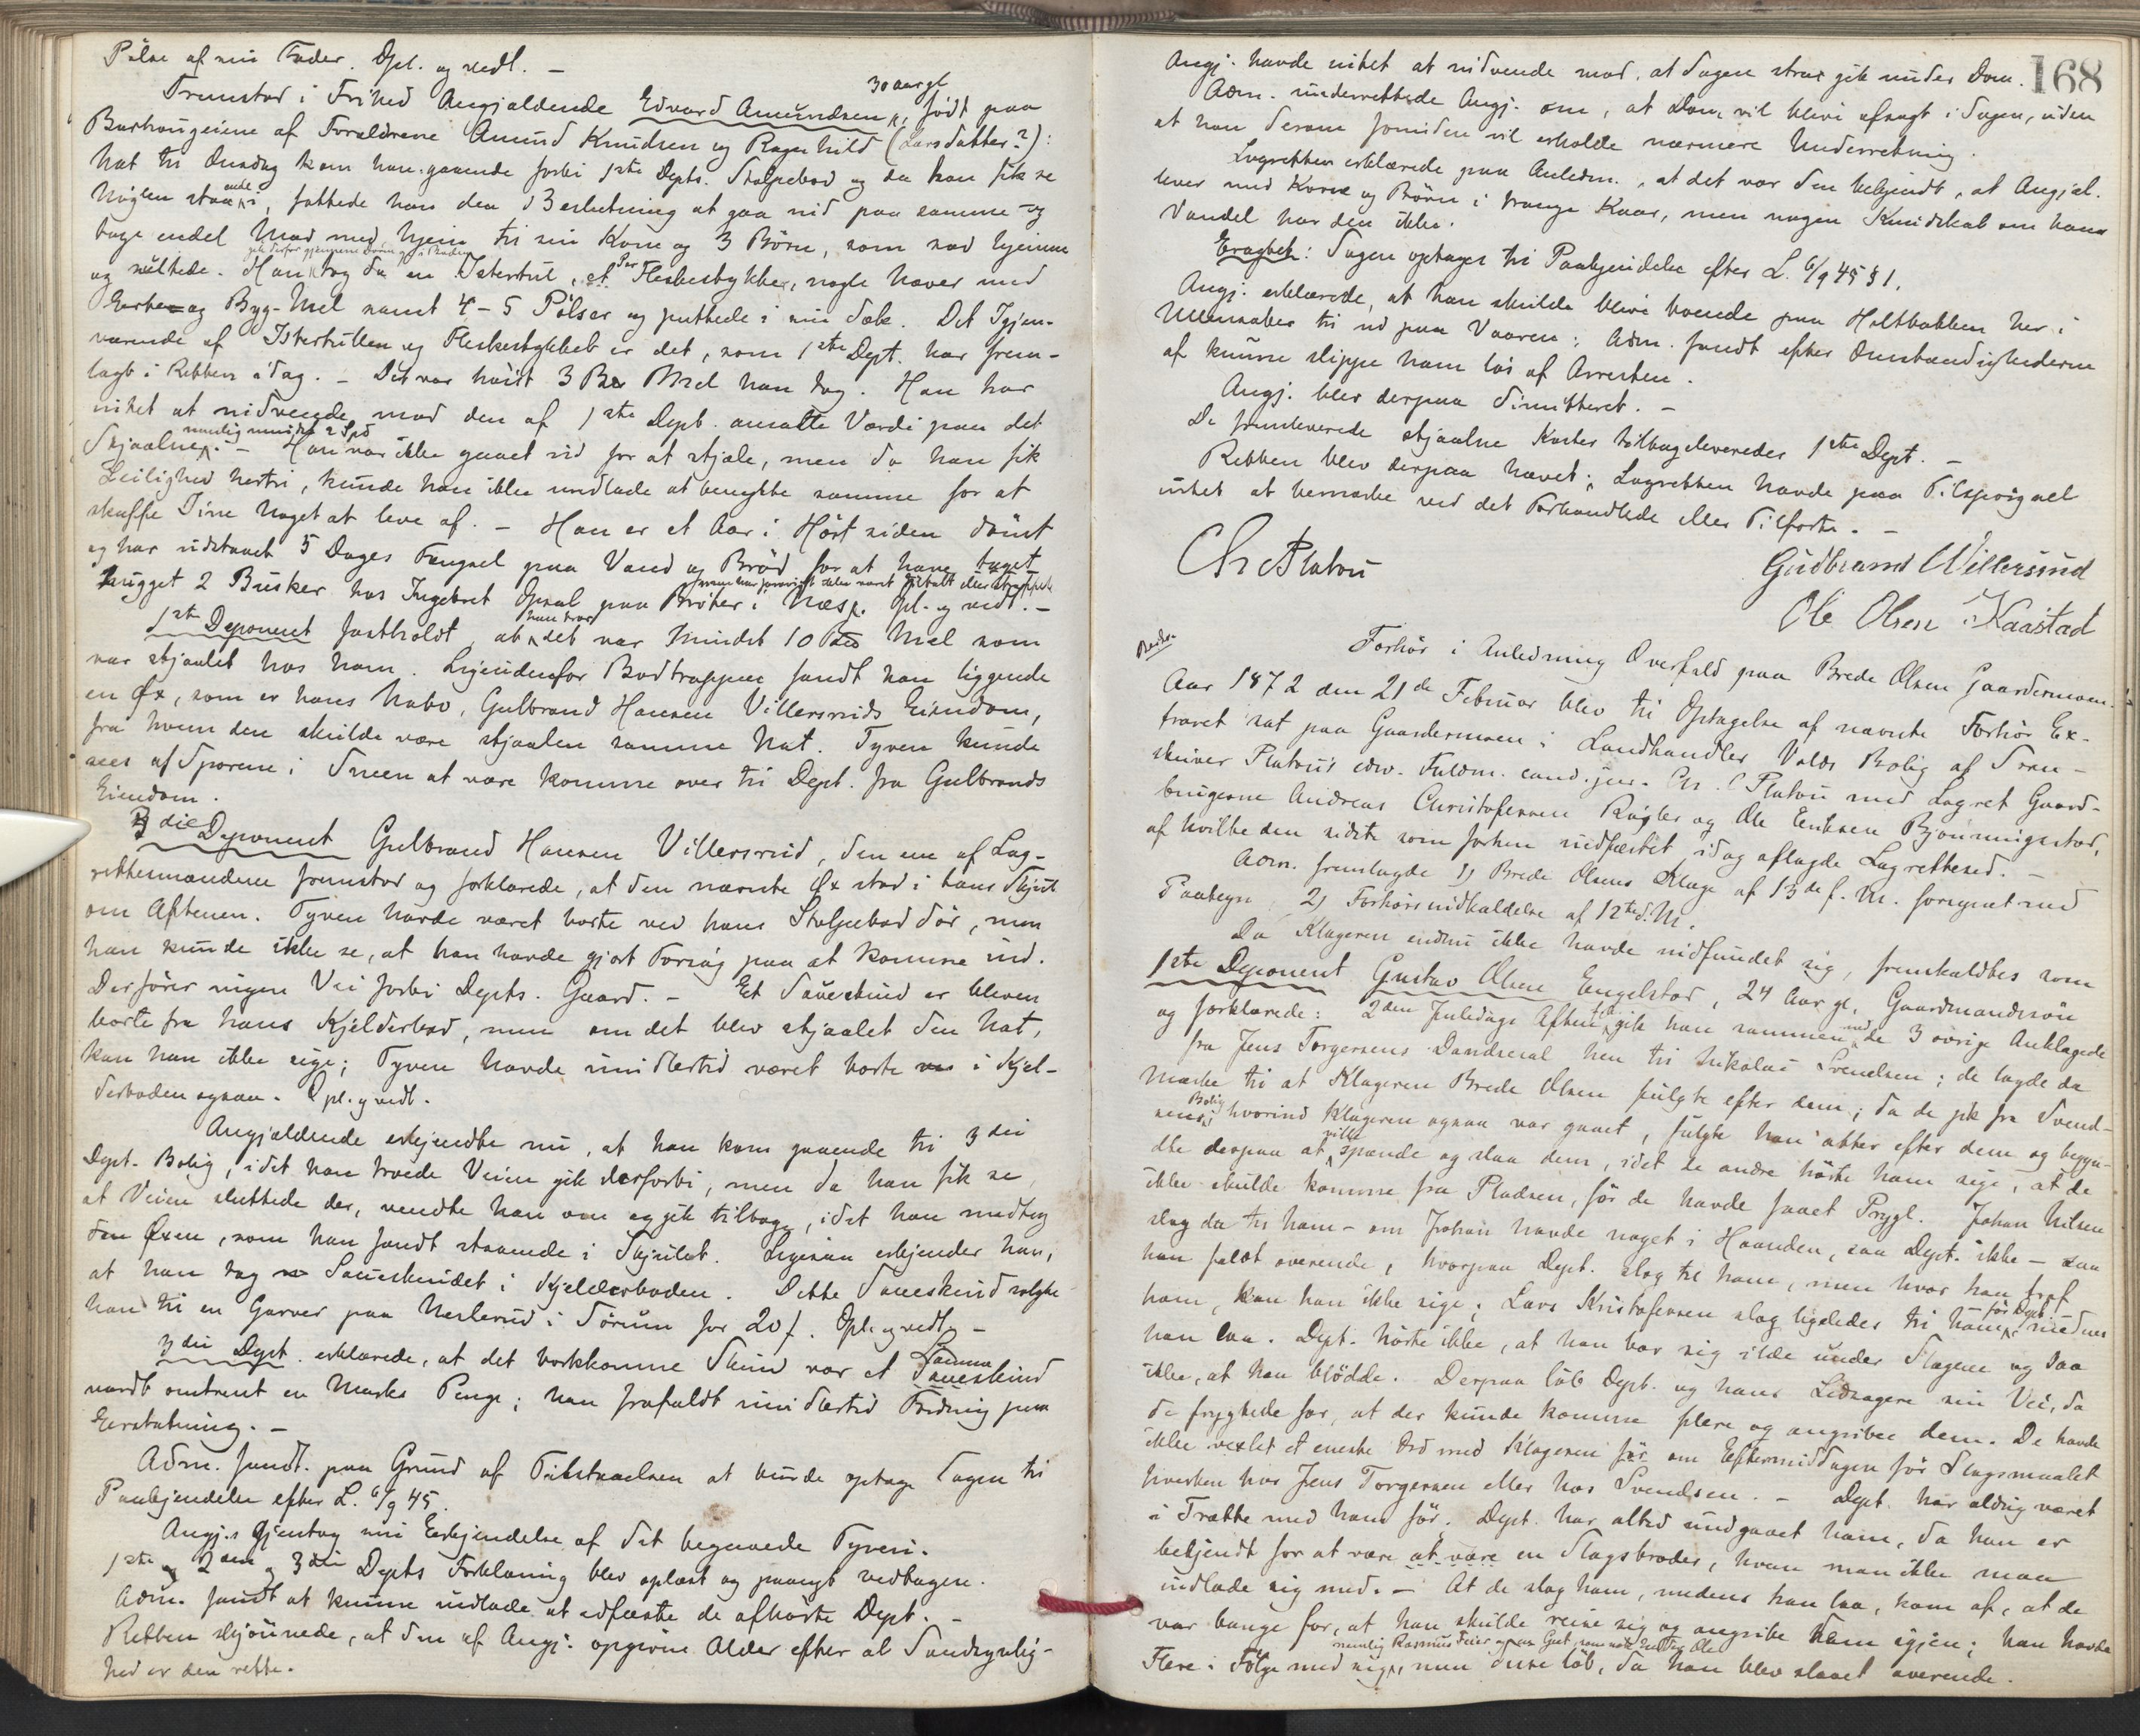 Pölse af sin Fader. Opl. og vedt. –
Fremstod i Frihed Angjældende Edvard Amundsen, 30 aar gl., født paa
Barhaugeiene af Forældrene Amund Knudsen og Ragnhild (Larsdatter?):
Nat til Onsdag kom han gaaende forbi 1ste Depts. Stolpebod og da han fik se
Nöglen staaende i, fattede han den Beslutning at gaa ind paa samme og
tage endel Mad med hjem til sin Kone og 3 Börn, som sad hjemme
og sultede. Han gik derfor gjennem Dören op i Boden tog da en Istertul, et Par Fleskestykker, nogle Næver med
Erter og Byg-Mel samt 4-5 Pölser og puttede i sin Sæk. Det Igjen-
værende af Istertullen og Fleskestykket er det, som 1ste Dept. har frem-
lagt i Retten idag. – Det var höist 3 Bpd Mel han tog. Han har
intet at indvende mod den af 1ste Dept. ansatte Værdi paa det
Stjaalne, nemlig mindst 2 Spd. – Han var ikke gaaet ud for at stjæle, men da han fik
Leilighed hertil, kunde han ikke undlade at benytte samme for at
skaffe Sine Noget at leve af. – Han er et Aar i Höst siden dömt
og har udstaaet 5 Dages Fængsel paa Vand og Bröd for at have taget
hugget 2 Busker hos Ingebret Opsal paa Bröter i Næs, men har forövrigt ikke været tiltalt eller straffet. Opl. og vedt. –
1ste Deponent fastholdt, at han tror det var mindst 10 Mel som
var stjaalet hos ham. Ligeudenfor Bodtrappen fandt han liggende
en Öx, som er hans Nabo, Gulbrand Hansen Villersruds Eiendom,
fra hvem den skulde være stjaalen samme Nat. Tyven kunde
sees af Sporene i Sneen at være komne over til Dept. fra Gulbrands
Eiendom.
3die Deponent Gulbrand Hansen Villersrud, den ene af Lag-
rettesmændene fremstod og forklarede, at den nævnte Öx stod i hans Skjul
om Aftenen. Tyven havde været borte ved hans Stolpebod dör, men
han kunde ikke se, at han havde gjort Forsög paa at komme ind.
Der förer ingen Vei forbi Depts. Gaard. – Et Saueskind er bleven
borte fra hans Kjelderbod, men om det blev stjaalet den Nat,
kan han ikke sige; Tyven havde imidlertid været borte i Kjel-
derboden ogsaa. Opl. og vedt.
Angjældende erkjendte nu, at han kom gaaende til 3die
Dept. Bolig, idet han troede Veien gik derforbi, men da han fik se,
at Veien sluttede der, vendte han om og gik tilbage, idet han medtog
den Öxen, som han fandt staaende i Skjulet. Ligesaa erkjender han,
at han tog Saueskindet i Kjelderboden. Dette Saueskind solgte
han til en Garver paa Merlerud i Sörum for 20 f. Opl. og vedt. –
3die Dept. erklærede, at det bortkomne Skind var et Lamme Saueskind
værdt omtrent en Marks Penge; han frafaldt imidlertid Fordring paa
Erstatning. –
Adm. fandt paa Grund af Tilstaaelsen at burde optage Sagen til
Paakjendelse efter L. 6/9 45.
Angj. gjentog sin Erkjendelse af det begaaede Tyveri.
1ste og 2den og 3die Depts Forklaring blev oplæst og paanyt vedtagen.
Adm. fandt at kunne undlade at edfæste de afhörte Dept. –
Retten skjönnede, at den af Angj. opgivne Alder efter al Sandsynlig-
hed er den rette.
168
Angj. havde intet at indvende mod, at Sagen strax gik under Dom.
Adm. underrettede Angj. om, at Dom vil blive afsagt i Sagen, uden
at han derom forinden vil erholde nærmere Underretning.
Lagretten erklærede paa Anledn., at det var den bekjendt, at Angjæl.
lever med Kone og Börn i trange Kaar, men nogen Kundskab om hans
Vandel har den ikke.
Eragtet: Sagen optages til Paakjendelse efter L. 6/9 45 § 1.
Angj. erklærede, at han skulde blive boende paa Holtbakken her i
Ullensaker til ud paa Vaaren; Adm. fandt efter Omstændighederne
at kunne slippe ham lös af Arresten.
Angj. blev derpaa dimitteret. –
De fremleverede stjaalne Koster tilbageleveredes 1ste Dept. –
Retten blev derpaa hævet; Lagretten havde paa Tilspörgsel
intet at bemærke ved det Forhandlede eller Tilförte. –
Chr Platou
Gudbrand Willersrud
Ole Olsen Kaastad
Forhör i Anledning Overfald paa Brede Olsen Gaardermoen.
Aar 1872 den 21de Februar blev til Optagelse af nævnte Forhör Ex-
traret sat paa Gaardermoen i Landhandler Volds Bolig af Soren-
skriver Platou's edsv. Fuldm. cand. jur. Chr. C Platou med Lagret Gaard-
brugerne Andreas Christofersen Rögler og Ole Eriksen Bjönningstad,
af hvilke den sidste som forhen uedfæstet idag aflagde Lagrettesed. –
Adm. fremlagde 1) Brede Olsens Klage af 13de f. M. forsynet med
Paategn. 2) Forhörsindkaldelse af 12te d. M.
Da Klageren endnu ikke havde indfundet sig, fremkaldtes som
1ste Deponent Gustav Olsen Engelstad, 24 Aar gl, Gaardmandssön
og forklarede: 2den Juledags Aften gik han sammen med de 3 övrige Anklagede
fra Jens Torgersens Dandseval hen til Nikolai Svendsen; de lagde da
Mærke til at Klageren Brede Olsen fulgte efter dem; da de gik fra Svend-
sens Bolig, hvorind Klageren ogsaa var gaaet, fulgte han atter efter dem og begyn-
dte derpaa at ville spænde og slaa dem, idet de andre hörte ham sige, at de
ikke skulde komme fra Pladsen, för de havde faaet Prygl. Johan Nilsen
slog da til ham – om Johan havde noget i Haanden, saa Dept. ikke – saa
han faldt overende, hvorpaa Dept. slog til ham, men hvor han traf
ham, kan han ikke sige; Lars Kristofersen slog ligeledes til ham för Dept., medens
han laa. Dept. hörte ikke, at han bar sig ilde under Slagene og saa
ikke, at han blödde. Derpaa löb Dept. og hans Ledsagere sin Vei, da
de frygtede for, at der kunde komme flere og angribe dem. De havde
ikke vexlet et eneste Ord med Klageren för om Eftermiddagen för Slagsmaalet
hverken hos Jens Torgersen eller hos Svendsen. – Dept. har aldrig været
i Trætte med ham för. Dept. har altid undgaaet ham, da han er
bekjendt for at være at være en Slagsbroder, hvem man ikke maa
indlade sig med. – At de slog ham, medens han laa, kom af, at de
var bange for, at han skulde reise sig og angribe dem igjen; han havde
Flere i Fölge med sig, men disse löb, da han blev slaaet overende.